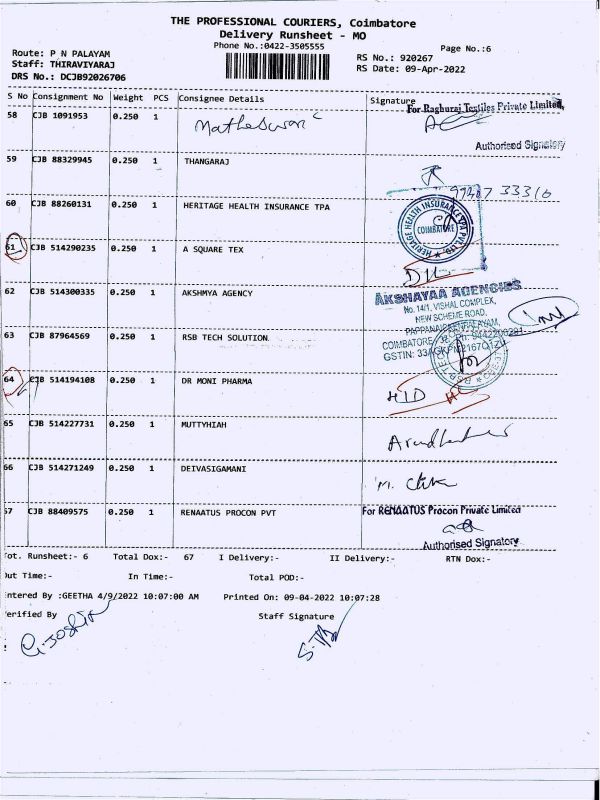 THE PROFESSIONAL COURIERS, Coimbatore
Delivery Runsheet - MO
Phone No.:0422-3505555
Page No.:6
Route: P N PALAYAM
Staff: THIRAVIYARAJ
DRS No.: DCJB92026706
RS No.: 920267
RS Date: 09-Apr-2022
S No Consignment No Weight PCS Consignee Details Signature
For Raghuraj Textiles Private Limited,
58 CJB 1091953 0.250 1
Authorised Signatory
59 CJB 88329945 0.250 1 THANGARAJ
60 CJB 88260131 0.250 1 HERITAGE HEALTH INSURANCE TPA
HERITAGE HEALTH INSURANCE TPA PVT. LTD.
COIMBATORE
61 CJB 514290235 0.250 1 A SQUARE TEX
62 CJB 514300335 0.250 1 AKSHMYA AGENCY
AKSHAYAA AGENCIES
No. 14/1, VISHAL COMPLEX,
NEW SCHEME ROAD,
PAPPANAICKENPALAYAM,
COIMBATORE
GSTIN:
63 CJB 87964569 0.250 1 RSB TECH SOLUTION
64 CJB 514194108 0.250 1 DR MONI PHARMA
65 CJB 514227731 0.250 1 MUTTYHIAH
66 CJB 514271249 0.250 1 DEIVASIGAMANI
67 CJB 88409575 0.250 1 RENAATUS PROCON PVT
For RENAATUS Procon Private Limited
Authorised Signatory
Tot. Runsheet:- 6 Total Dox:- 67 I Delivery:- II Delivery:- RTN Dox:-
Out Time:- In Time:- Total POD:-
Entered By :GEETHA 4/9/2022 10:07:00 AM Printed On: 09-04-2022 10:07:28
Verified By Staff Signature